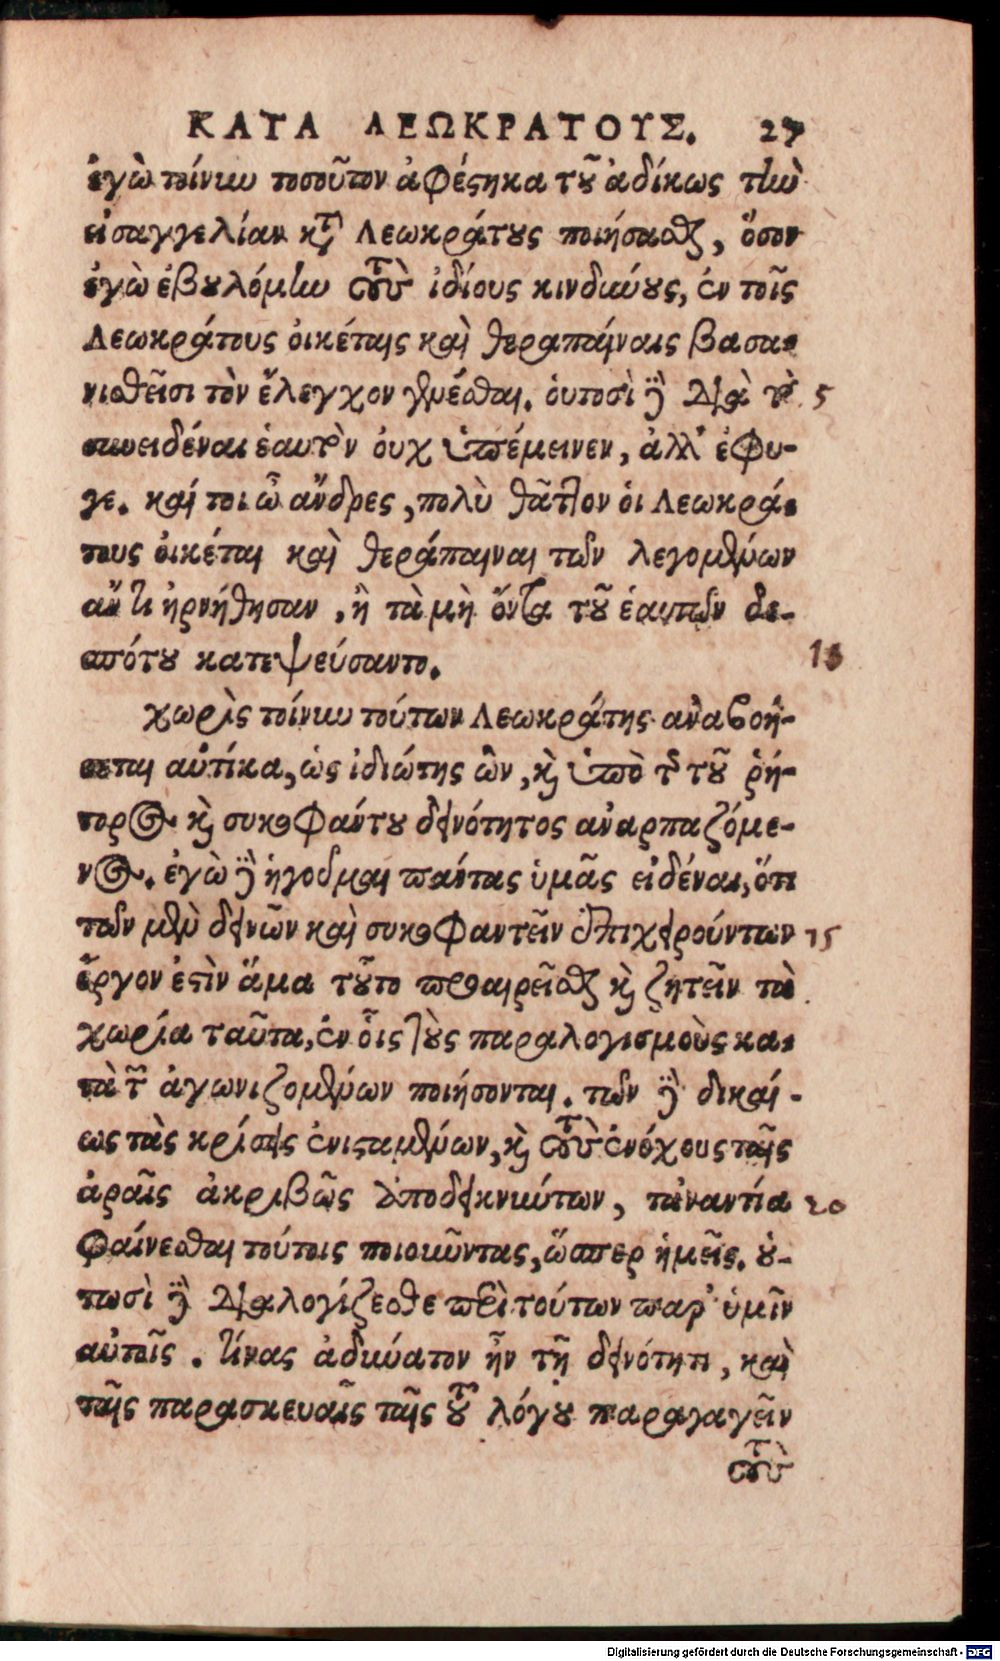 ΚΑΤΑ ΛΕΩΚΡΑΤΟΥΣ. 27
ἐγὼ τοίνυν τοσοῦτον ἀφέστηκα τοῦ ἀδίκως τὴν
εἰσαγγελίαν κατὰ Λεωκράτους ποιήσασθαι, ὅσον
ἐγὼ ἐβουλόμην τοὺς ἰδίους κινδύνους, ἐν τοῖς
Λεωκράτους οἰκέταις καὶ θεραπαίναις βασα-
νισθεῖσι τὸν ἔλεγχον γενέσθαι. οὑτοσὶ δὲ διὰ τὸ 5
συνειδέναι ἑαυτὸν οὐχ ὑπέμεινεν, ἀλλ' ἔφυ-
γε. καί τοι ὦ ἄνδρες, πολὺ θᾶττον οἱ Λεωκρά-
τους οἰκέται καὶ θεράπαιναι τῶν λεγομένων
ἄν τι ἠρνήθησαν, ἢ τὰ μὴ ὄντα τοῦ ἑαυτῶν δε-
σπότου κατεψεύσαντο. 10
χωρὶς τοίνυν τούτων Λεωκράτης ἀναβοή-
σεται αὐτίκα, ὡς ἰδιώτης ὢν, καὶ ὑπὸ τῆς τοῦ ῥή-
τορος καὶ συκοφάντου δεινότητος ἀναρπαζόμε-
νος. ἐγὼ δὲ ἡγοῦμαι πάντας ὑμᾶς εἰδέναι, ὅτι
τῶν μὲν δεινῶν καὶ συκοφαντεῖν ἐπιχειρούντων 15
ἔργον ἐστὶν ἅμα τοῦτο προαιρεῖσθαι καὶ ζητεῖν τὰ
χωρία ταῦτα, ἐν οἷς τοὺς παραλογισμοὺς κα-
τὰ τῶν ἀγωνιζομένων ποιήσονται. τῶν δὲ δικαί-
ως τὰς κρίσεις ἐνισταμένων, καὶ τοὺς ἐνόχους ταῖς
ἀραῖς ἀκριβῶς ἀποδεικνύντων, τἀναντία 20
φαίνεσθαι τούτοις ποιοῦντας, ὥσπερ ἡμεῖς. οὑ-
τωσὶ δὲ διαλογίζεσθε περὶ τούτων παρ' ὑμῖν
αὐτοῖς. τίνας ἀδύνατον ἦν τῇ δεινότητι, καὶ
ταῖς παρασκευαῖς ταῖς τοῦ λόγου παραγαγεῖν
τοὺς
Digitalisierung gefördert durch die Deutsche Forschungsgemeinschaft - DFG